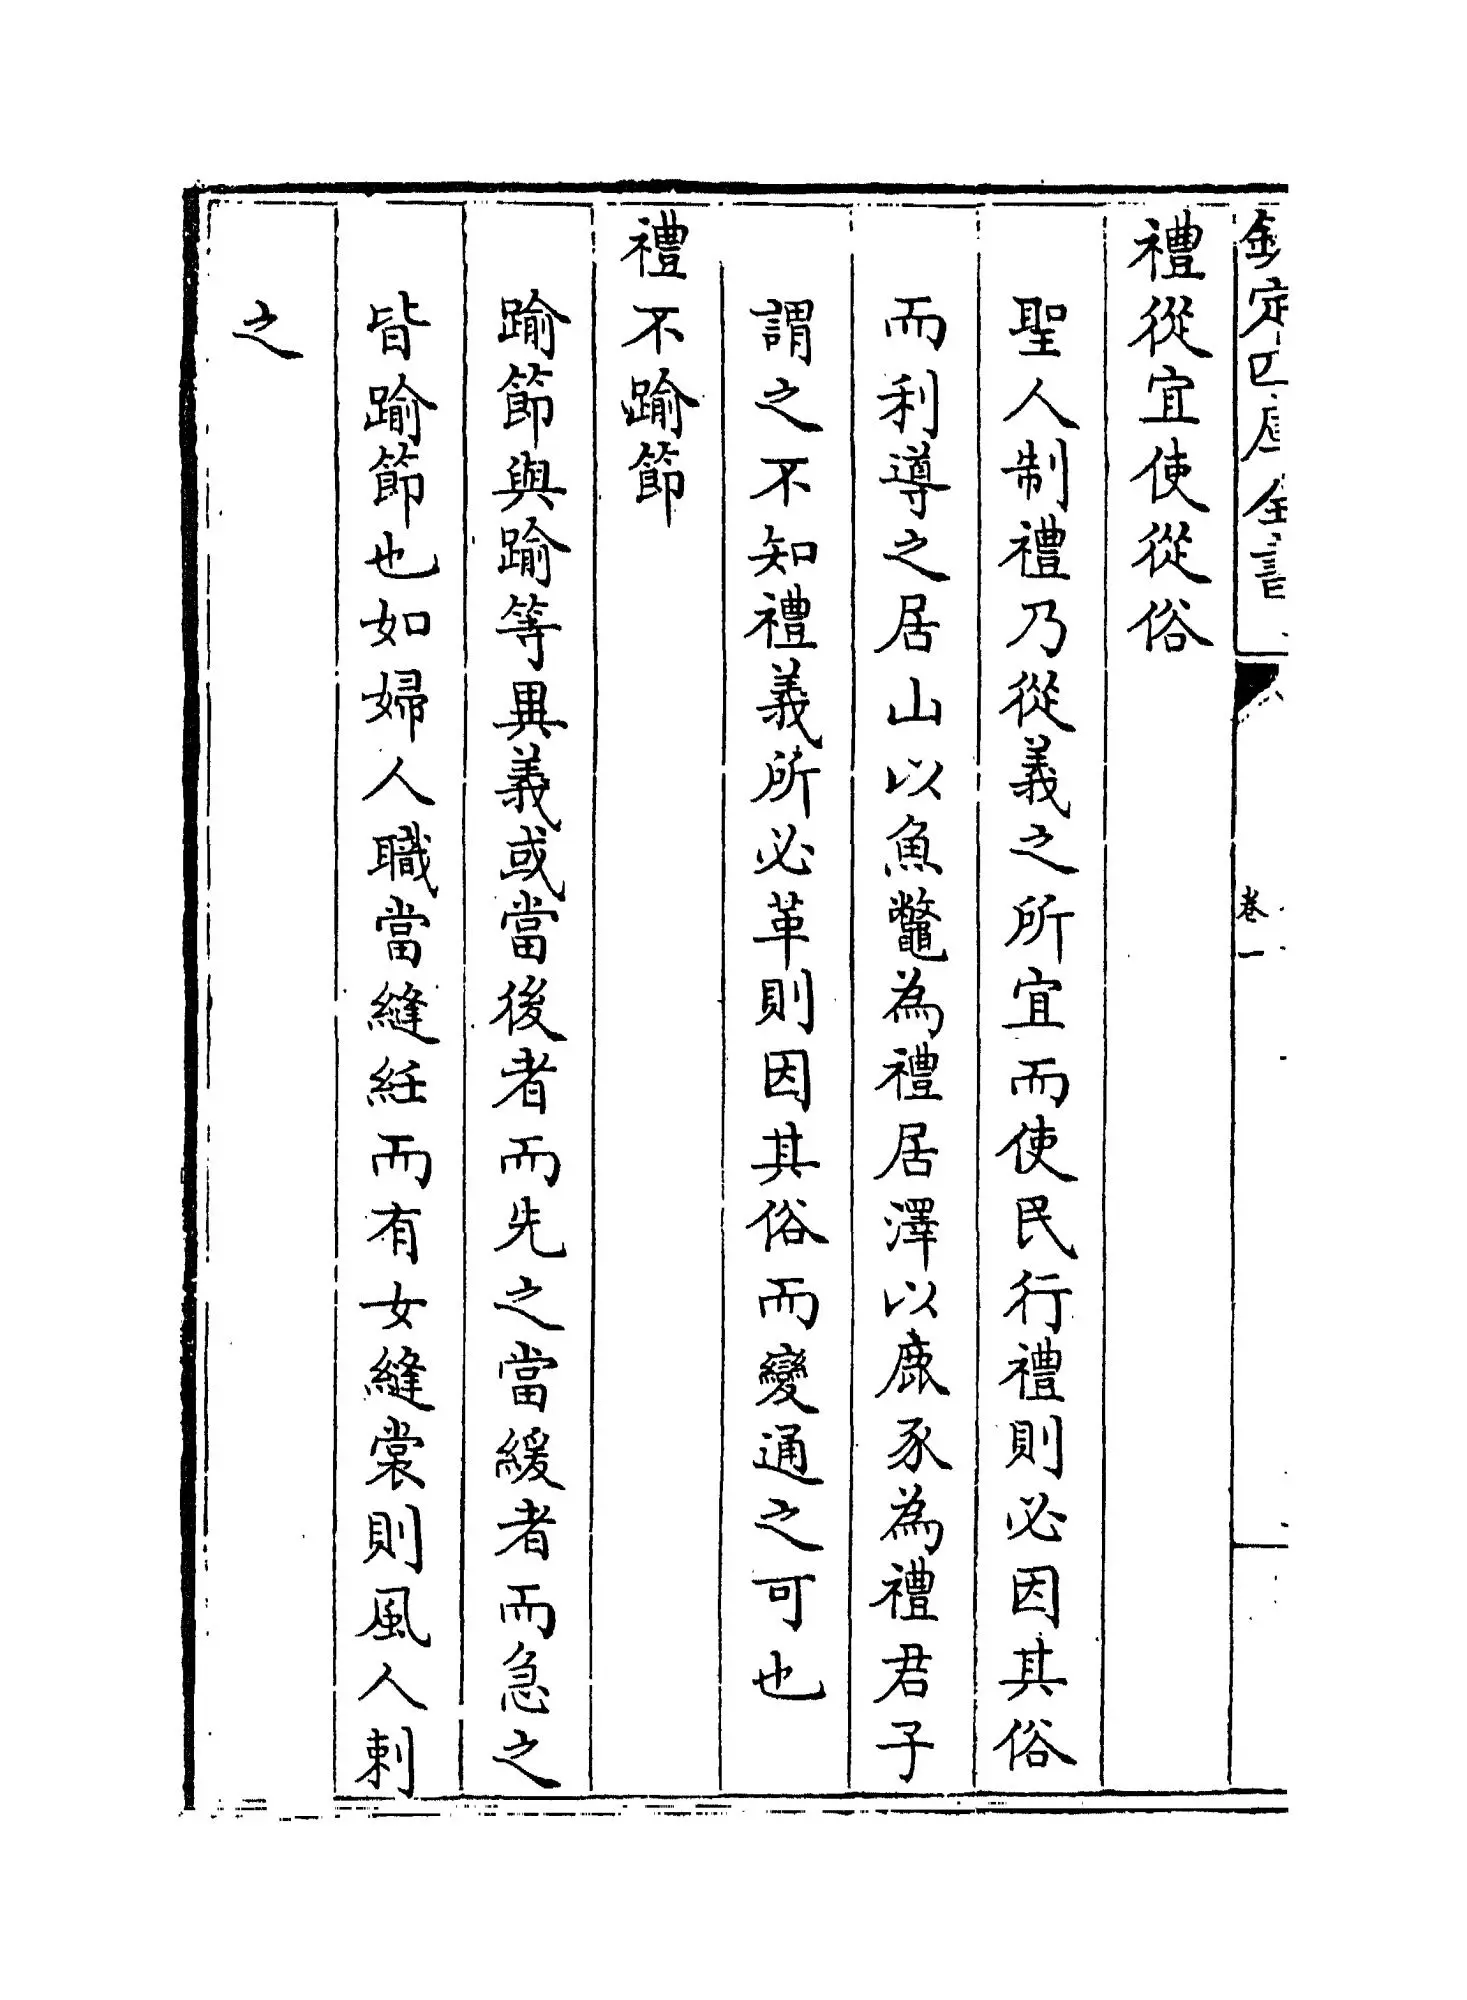 欽定四庫全書
卷一
禮從宜使從俗
聖人制禮乃從義之所宜而使民行禮則必因其俗
而利導之居山以魚鼈為禮居澤以鹿豕為禮君子
謂之不知禮義所必革則因其俗而變通之可也
禮不踰節
踰節與踰等異義或當後者而先之當緩者而急之
皆踰節也如婦人職當縫紝而有女縫裳則風人刺
之